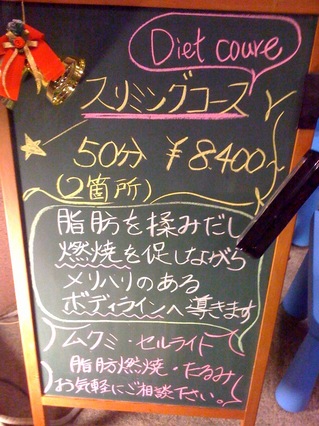 Diet coure
スリミングコース
50分 ¥8.400~
(2箇所)
脂肪を揉みだし
燃焼を促しながら
メリハリのある
ボディラインへ導きます
ムクミ・セルライト
脂肪燃焼・たるみ
お気軽にご相談下さい。